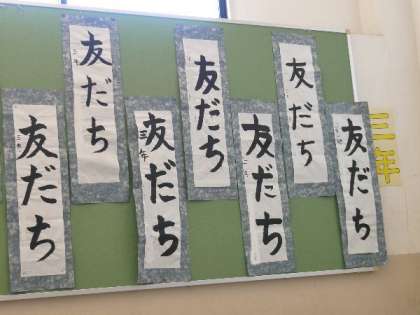 友だち
友だち
友だち
友だち
三年
友だち
友だち
友だち
三年